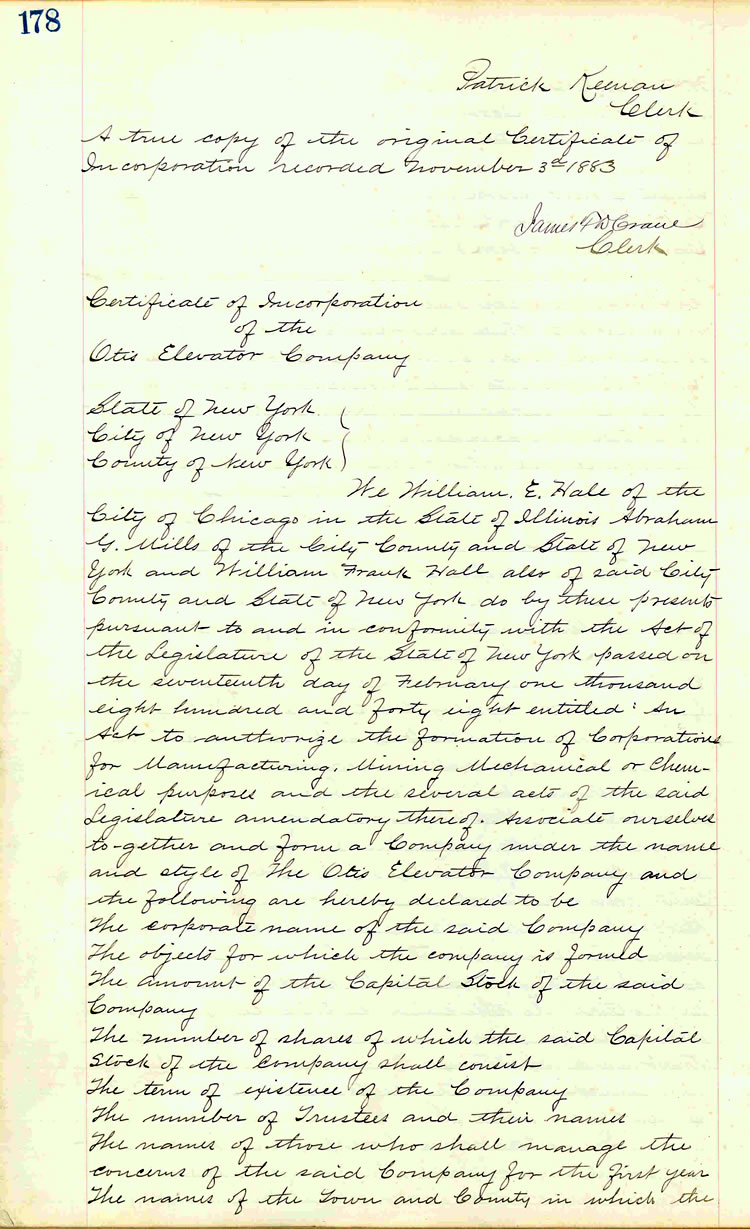 178
Patrick Keenan
Clerk
A true copy of the original Certificate of
Incorporation recorded November 3rd 1883
James Crane
Clerk
Certificate of Incorporation
of the
Otis Elevator Company
State of New York
City of New York
County of New York
We William. E. Hale of the
City of Chicago in the State of Illinois Abraham
G. Mills of the City County and State of New
York and William Frank Hall also of said City
County and State of New York do by these presents
pursuant to and in conformity with the Act of
the Legislature of the State of New York passed on
the seventeenth day of February one thousand
eight hundred and forty eight entitled: An
Act to authorize the formation of Corporations
for Manufacturing. Mining Mechanical or Chem-
ical purposes and the several acts of the said
Legislature amendatory thereof. Associate ourselves
to-gether and form a Company under the name
and style of The Otis Elevator Company and
the following are hereby declared to be
The corporate name of the said Company
The objects for which the company is formed
The amount of the Capital Stock of the said
Company
The number of shares of which the said Capital
Stock of the Company shall consist
The term of existence of the Company
The number of Trustees and their names
The names of those who shall manage the
concerns of the said Company for the first year
The names of the Town and County in which the